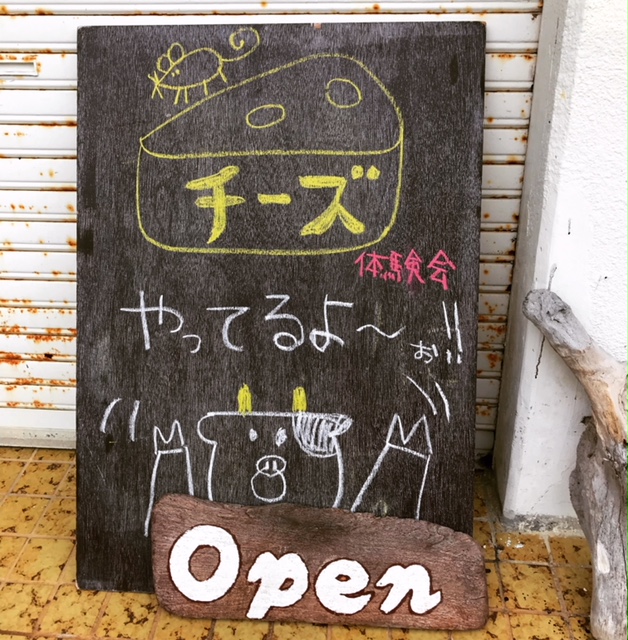 チーズ
体験会
やってるよ〜ぉぃ!!
Open